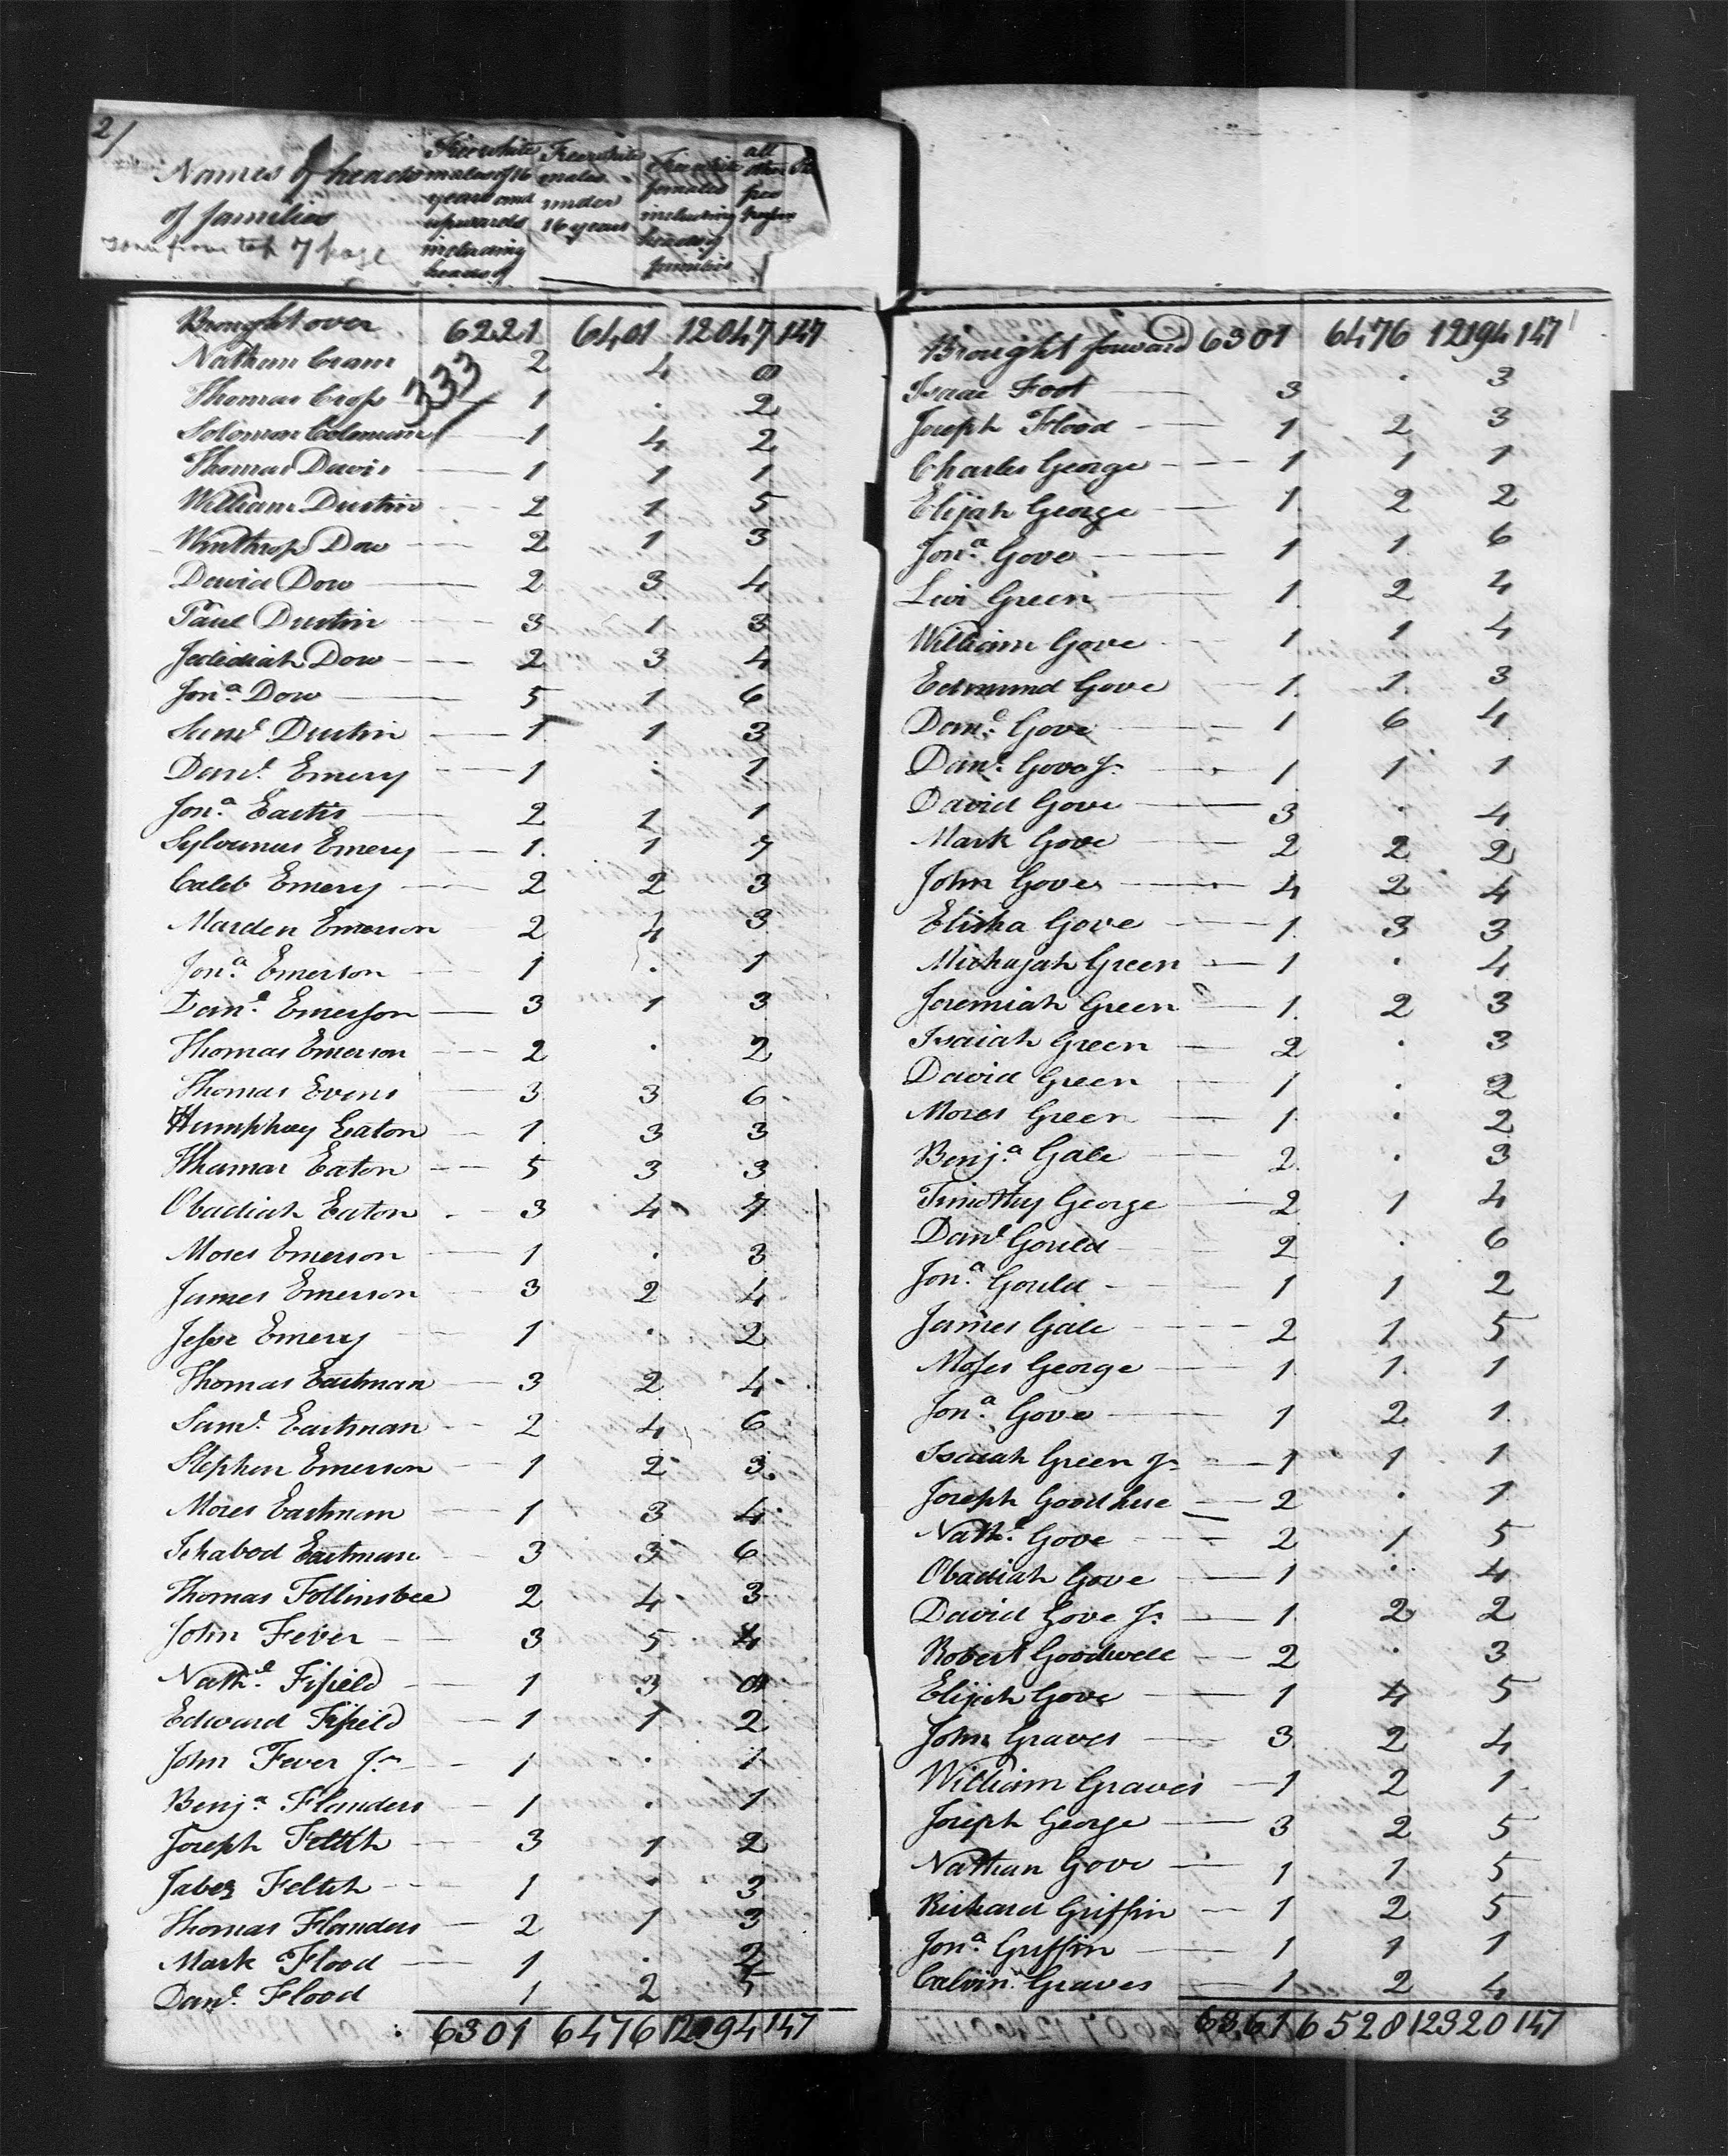 2/
Names of heads of families
Free white males of 16 years and upwards including heads of
Free white males under 16 years
Free white females including heads of families
all other free
torn from top of page
Brought over 6221 6401 12047 147
333
Nathan Cram 2 4 0
Thomas Cross 1 . 2
Solomon Coleman 1 4 2
Thomas Davis 1 1 1
William Dustin 2 1 5
Winthrop Dow 2 1 3
David Dow 2 3 4
Paul Dustin 3 1 3
Jedediah Dow 2 3 4
Jona. Dow 5 1 6
Saml. Dustin 1 1 3
Danl. Emery 1 . 1
Jona. Eastis 2 2 1
Sylvanus Emery 1 1 7
Caleb Emery 2 2 3
Marden Emerson 2 4 3
Jona. Emerson 1 . 1
Danl. Emerson 3 1 3
Thomas Emerson 2 . 2
Thomas Evens 3 3 6
Humphrey Eaton 1 3 3
Thamar Eaton 5 3 3
Obadiah Eaton 3 4 7
Moses Emerson 1 . 3
James Emerson 3 2 4
Jesse Emery 1 . 2
Thomas Eastman 3 2 4
Saml. Eastman 2 4 6
Stephen Emerson 1 2 3
Moses Eastman 1 3 4
Ichabod Eastman 3 3 6
Thomas Follinsbee 2 4 3
John Fever 3 5 4
Nathl. Fifield 1 3
Edward Fifield 1 1 2
John Fever Jr. 1 . 1
Benja. Flanders 1 . 1
Joseph Feltch 3 1 2
Jabez Feltch 1 . 3
Thomas Flanders 2 1 3
Mark Flood 1 . 2
Danl. Flood 1 2 5
6301 6476 12194 147
Brought forward 6301 6476 12194 147
Isaac Foot 3 . 3
Joseph Flood 1 2 3
Charles George 1 1 1
Elijah George 1 2 2
Jona. Gove 1 1 6
Levi Green 1 2 4
William Gove 1 1 4
Edmund Gove 1 1 3
Danl. Gove 1 6 4
Danl. Gove Jr. 1 1 1
David Gove 3 . 4
Mark Gove 2 2 2
John Gove 4 2 4
Elisha Gove 1 3 3
Michajah Green 1 . 4
Jeremiah Green 1 2 3
Isaiah Green 2 . 3
David Green 1 . 2
Moses Green 1 . 2
Benja. Gale 2 . 3
Timothy George 2 1 4
Danl. Gould 2 . 6
Jona. Gould 1 1 2
James Gale 2 1 5
Moses George 1 1 1
Jona. Gove 1 2 1
Isaiah Green Jr. 1 1 1
Joseph Goodhue 2 . 1
Nathl. Gove 2 1 5
Obadiah Gove 1 . 4
David Gove Jr. 1 2 2
Robert Goodwell 2 . 3
Elijah Gove 1 4 5
John Graves 3 2 4
William Graves 1 2 1
Joseph George 3 2 5
Nathan Gove 1 1 5
Richard Griffin 1 2 5
Jona. Griffin 1 1 1
Calvin Graves 1 2 4
6361 6528 12320 147